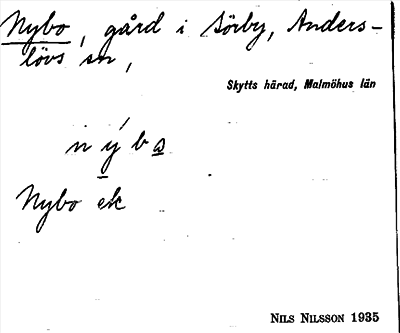 Nybo, gård i Sörby, Anders-
lövs sn,
Skytts härad, Malmöhus län
nýbo
Nybo ek
NILS NILSSON 1935